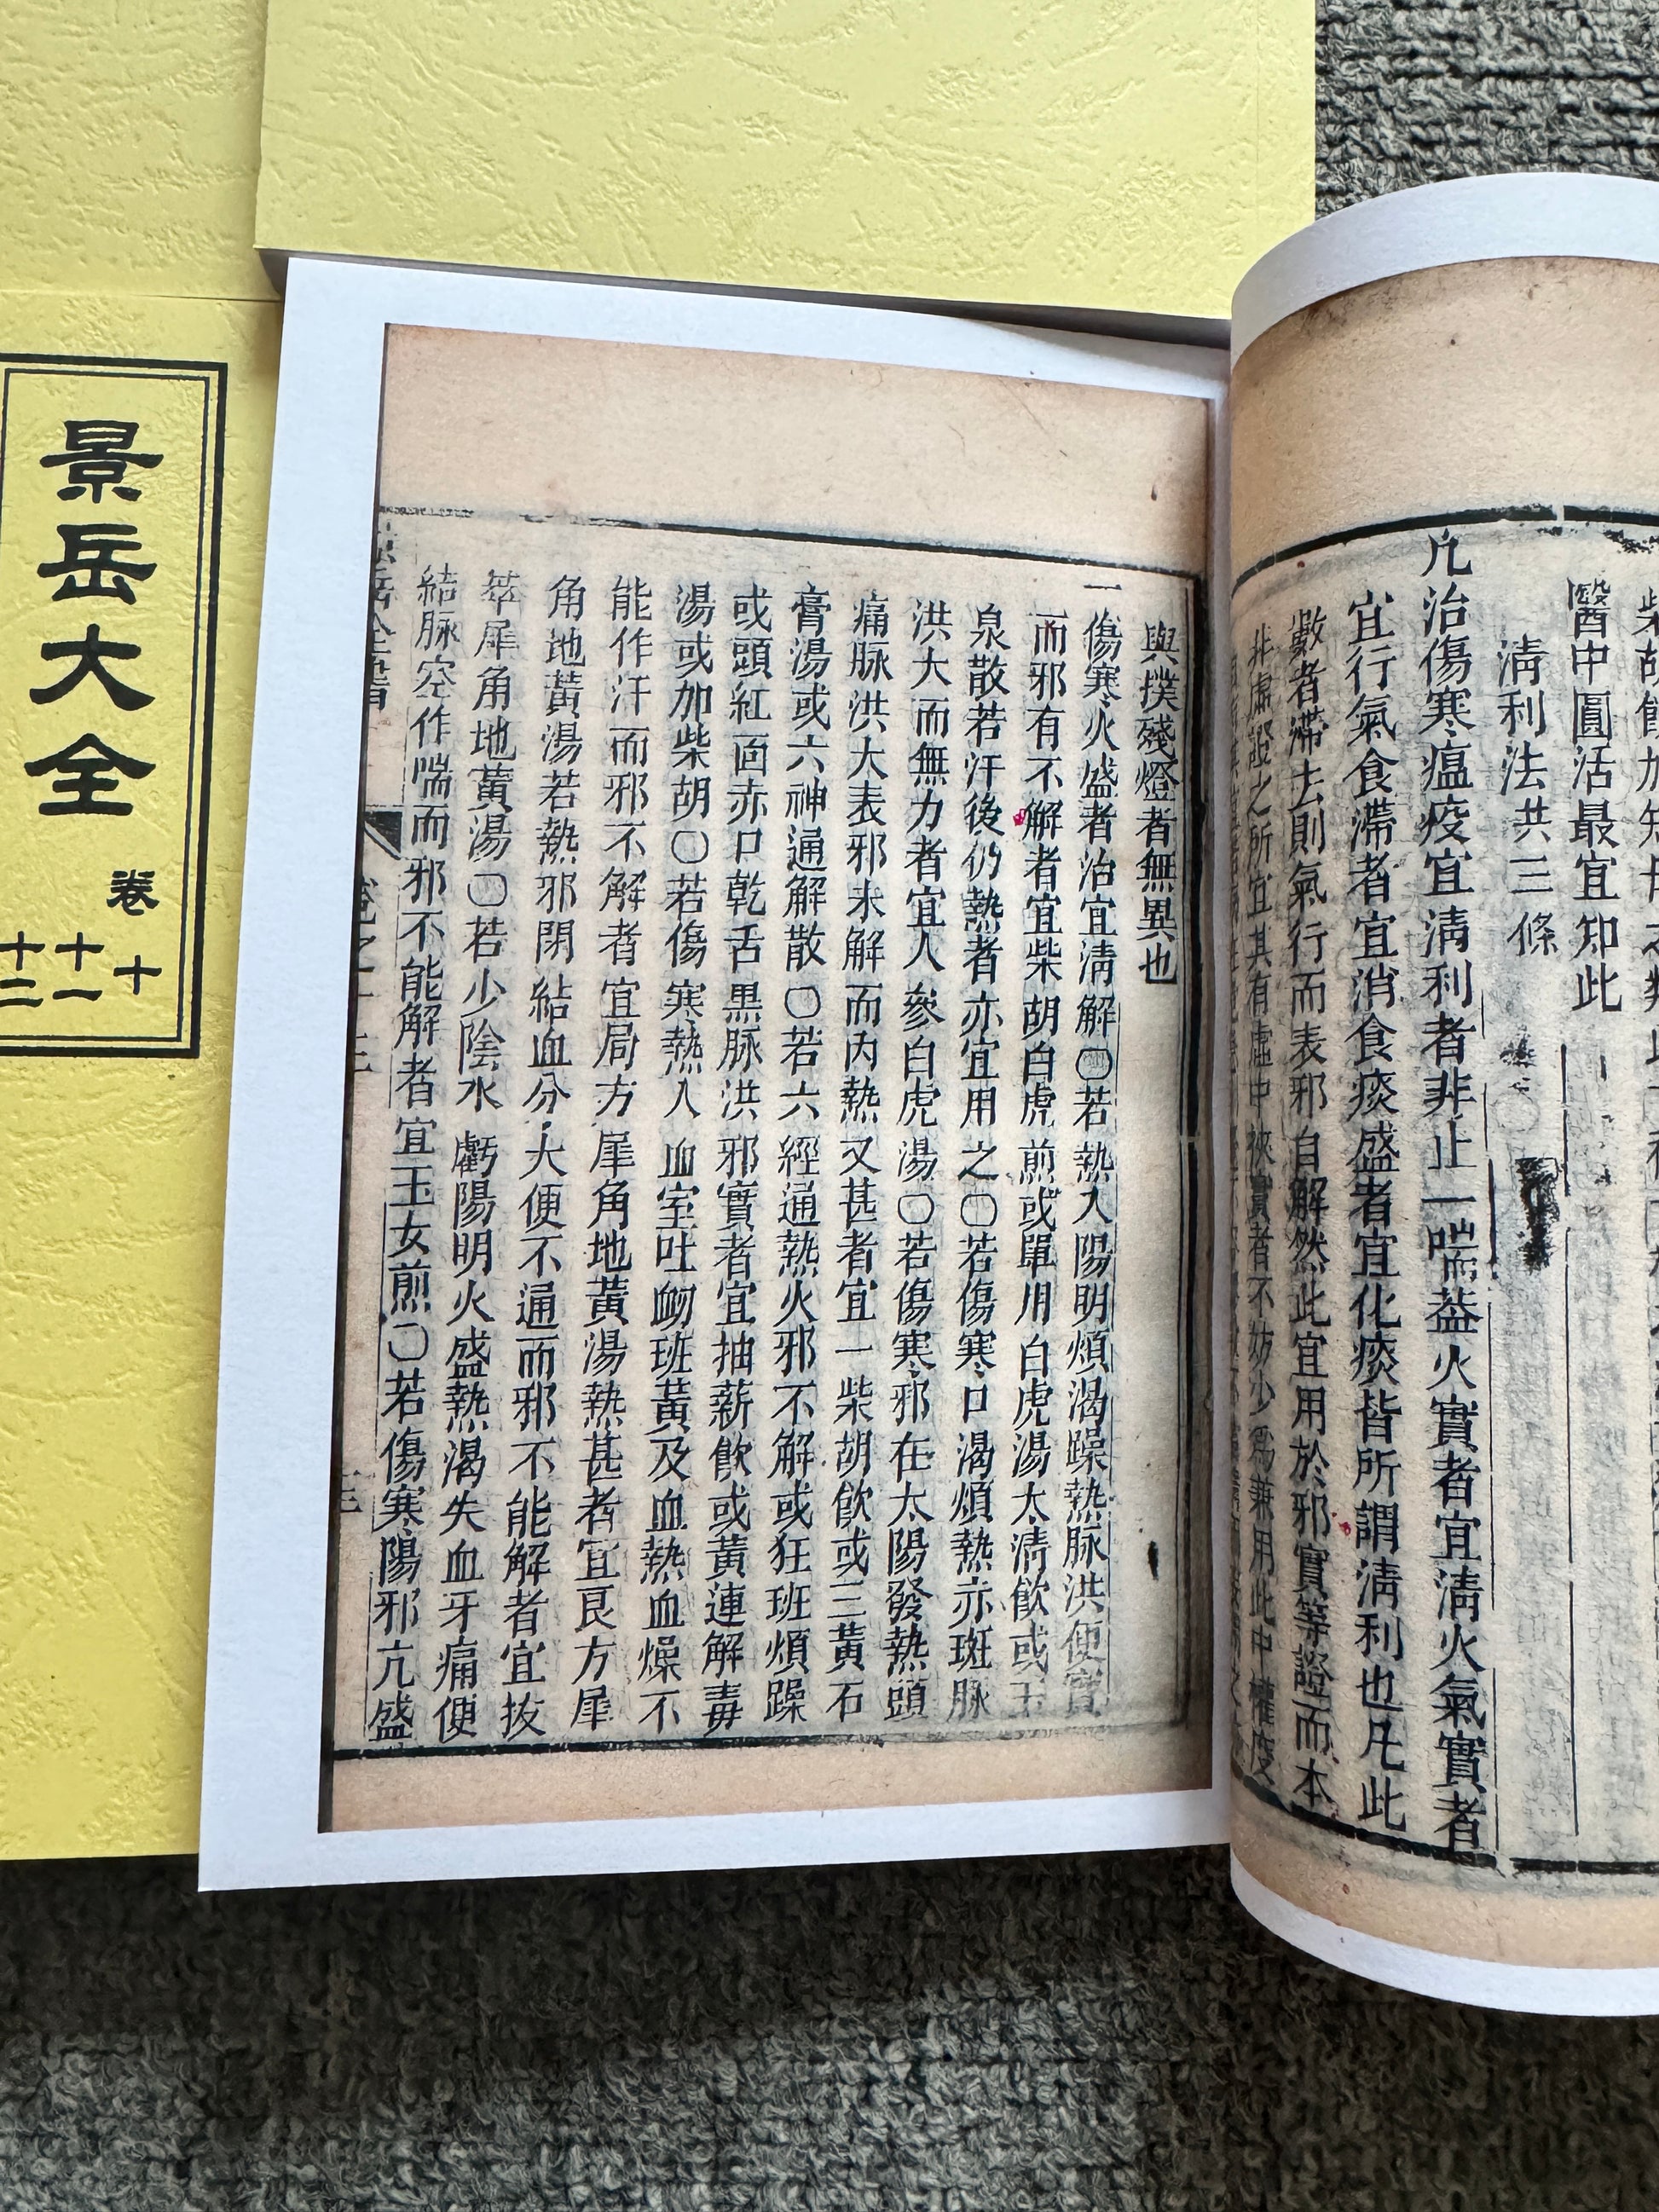 柴胡飲加知母之類
醫中圓活最宜知此
淸利法共三條
凡治傷寒瘟疫宜淸利者非止一端葢火實者宜淸火氣實者
宜行氣食滯者宜消食痰盛者宜化痰皆所謂淸利也凡此
數者滯去則氣行而表邪自解然此宜用於邪實等證而本
非虛證之所宜其有虛中挾實者不妨少爲兼用此中權度
與撲殘燈者無異也
一傷寒火盛者治宜淸解〇若熱入陽明煩渴躁熱脉洪便實
而邪有不解者宜柴胡白虎煎或單用白虎湯太淸飮或玉
泉散若汗後仍熱者亦宜用之〇若傷寒口渴煩熱赤斑脉
洪大而無力者宜人參白虎湯〇若傷寒邪在太陽發熱頭
痛脉洪大表邪未解而内熱又甚者宜一柴胡飮或三黃石
膏湯或六神通解散〇若六經通熱火邪不解或狂班煩躁
或頭紅面赤口乾舌黑脉洪邪實者宜抽薪飮或黃連解毒
湯或加柴胡〇若傷寒熱入血室吐衂班黃及血熱血燥不
能作汗而邪不解者宜局方犀角地黃湯熱甚者宜良方犀
角地黃湯若熱邪閉結血分大便不通而邪不能解者宜拔
萃犀角地黃湯〇若少陰水虧陽明火盛熱渴失血牙痛便
結脉空作喘而邪不能解者宜玉女煎〇若傷寒陽邪亢盛
景岳全書
卷之十三
三
景岳大全
卷十
十一
十二